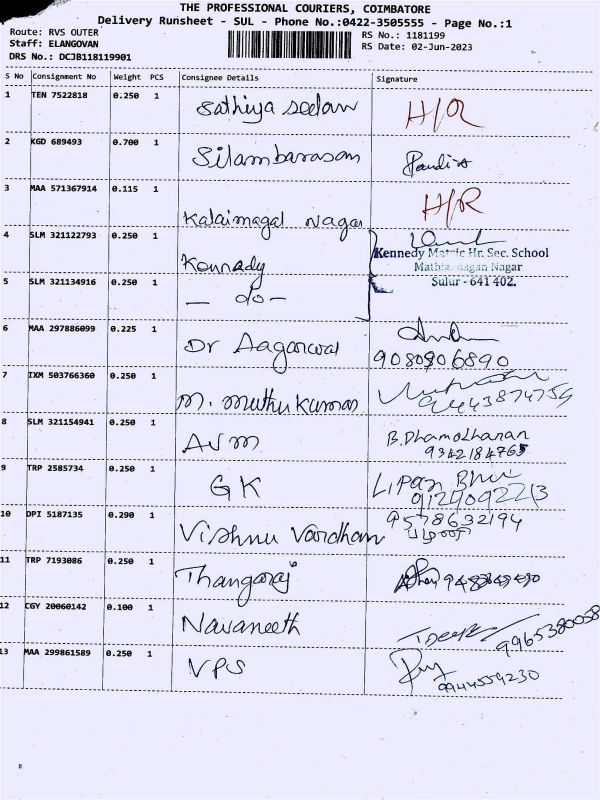 THE PROFESSIONAL COURIERS, COIMBATORE
Delivery Runsheet - SUL - Phone No.:0422-3505555 - Page No.:1
Route: RVS OUTER
Staff: ELANGOVAN
DRS No.: DCJB118119901
RS No.: 1181199
RS Date: 02-Jun-2023
S No Consignment No Weight PCS Consignee Details Signature
1 TEN 7522818 0.250 1 Sathiya seelan H/R
2 KGD 689493 0.700 1 Silambarasan
3 MAA 571367914 0.115 1 Kalaimagal Nagar H/R
4 SLM 321122793 0.250 1 Kennady
Kennedy Matric Hr. Sec. School
Nagar
Sulur - 641 402.
5 SLM 321134916 0.250 1 - do -
6 MAA 297886099 0.225 1 Dr Aagarwal
9080906890
7 IXM 503766360 0.250 1 M. Muthu Kumar
9443874754
8 SLM 321154941 0.250 1 AVM B.Dhamodharan
9342184765
9 TRP 2585734 0.250 1 GK Lipan
10 DPI 5187135 0.290 1 Vishnu Vardhan 9578632194
11 TRP 7193086 0.250 1 Thangaraj
12 CGY 20060142 0.100 1 Navaneeth
9965380058
13 MAA 299861589 0.250 1 VPS
9944559230